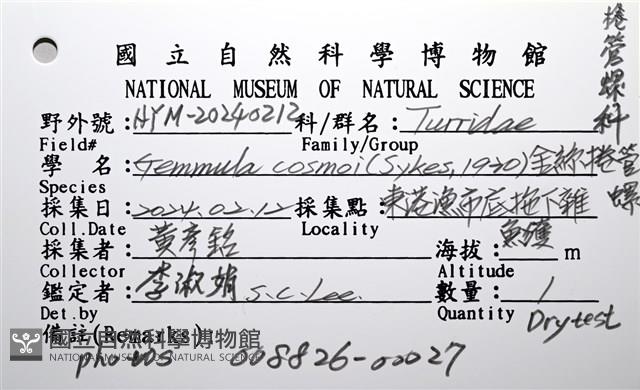 國立自然科學博物館
NATIONAL MUSEUM OF NATURAL SCIENCE
捲管螺科
野外號:HYM-20240212 科/群名:Turridae
Field# Family/Group
學 名:Gemmula cosmoi (Sykes, 1930) 金絲捲管螺
Species
採集日:2024.02.12 採集點:東港漁市底拖下雜魚獲
Coll.Date Locality
採集者:黃彥銘 海拔: m
Collector Altitude
鑑定者:李淑娟 S.C. Lee. 數量:1
Det.by Quantity Dry test
備註(Remarks)
國立自然科學博物館
NATIONAL MUSEUM OF NATURAL SCIENCE
008826-00027